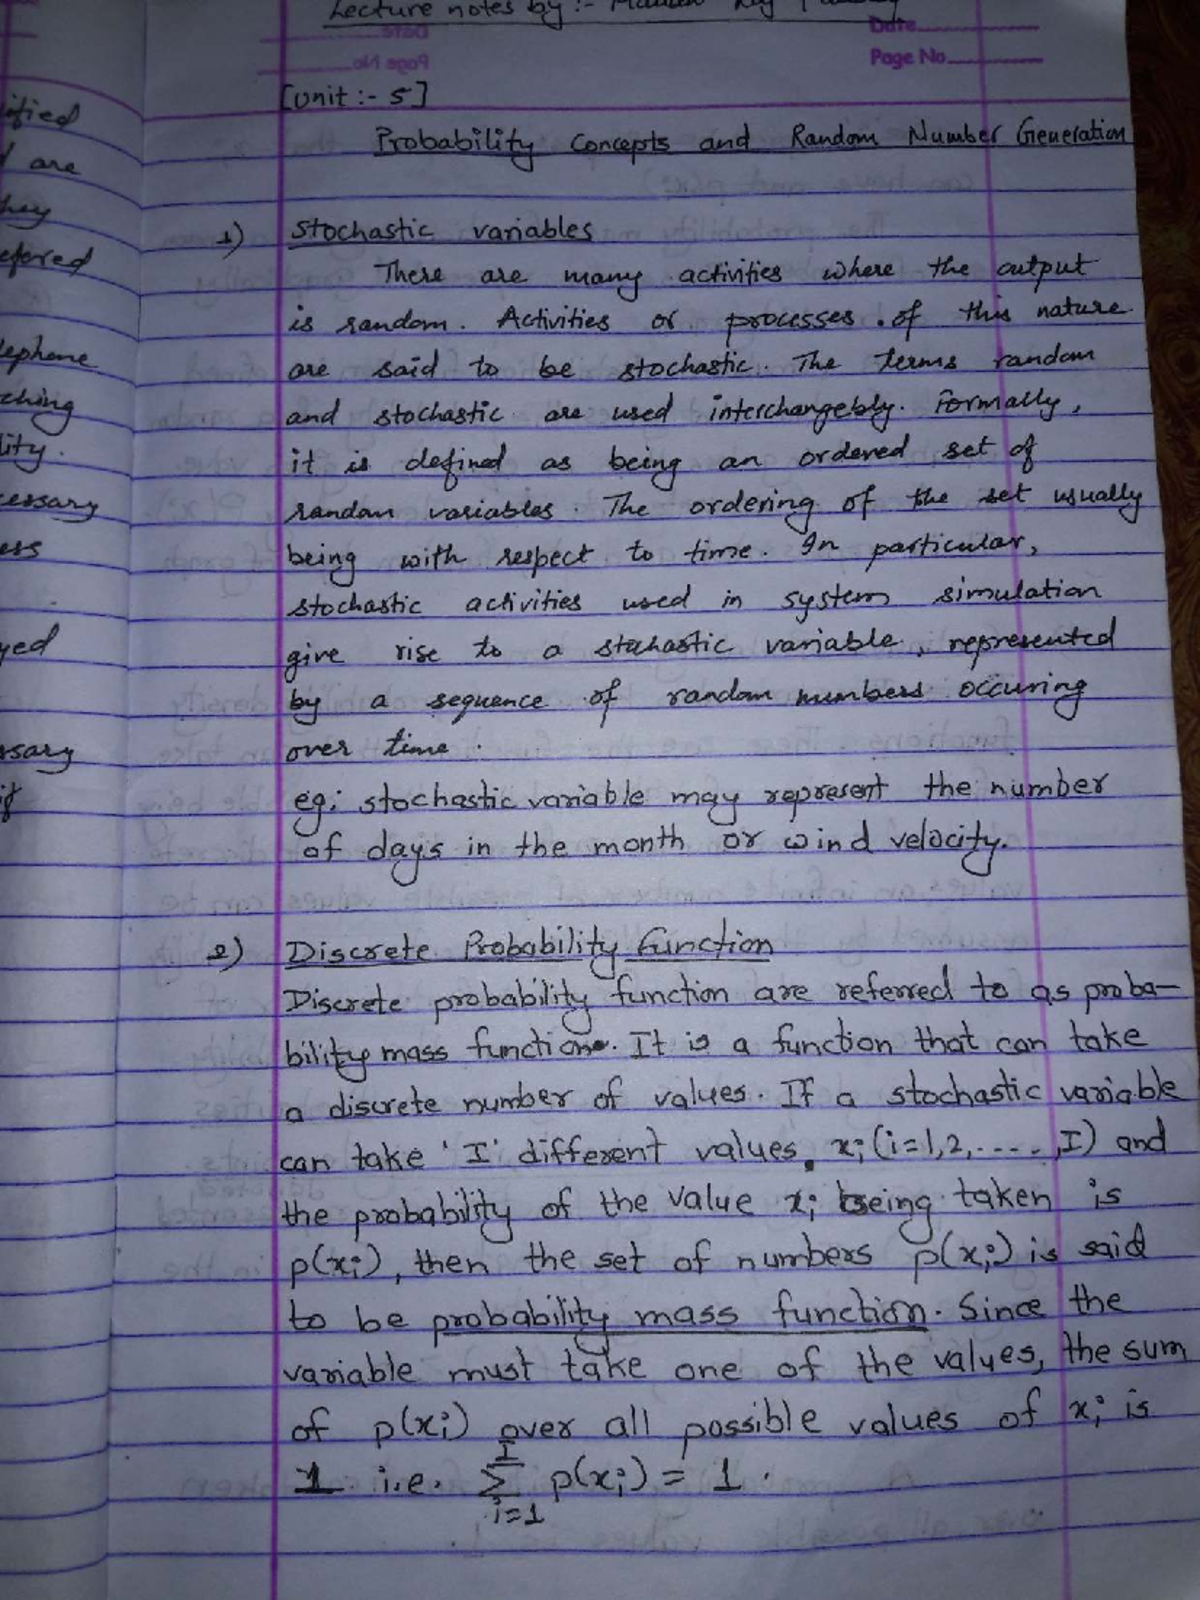 Lecture notes by :-
Date
Page No.
[Unit :- 5]
Probability Concepts and Random Number Generation
1) Stochastic variables
There are many activities where the output
is random. Activities or processes of this nature
are said to be stochastic. The terms random
and stochastic are used interchangebly. Formally,
it is defined as being an ordered set of
random variables. The ordering of the set usually
being with respect to time. In particular,
stochastic activities used in system simulation
give rise to a stochastic variable, represented
by a sequence of random numbers occuring
over time.
eg: stochastic variable may represent the number
of days in the month or wind velocity.
2) Discrete Probability Function
Discrete probability function are referred to as proba-
bility mass function. It is a function that can take
a discrete number of values. If a stochastic variable
can take 'I' different values, xi (i=1,2,....,I) and
the probability of the value xi being taken is
p(xi), then the set of numbers p(xi) is said
to be probability mass function. Since the
variable must take one of the values, the sum
of p(xi) over all possible values of xi is
1 i.e. I∑i=1 p(xi) = 1.
ified
are
hey
efered
lephone
ching
lity.
cessary
ess
yed
ssary
if